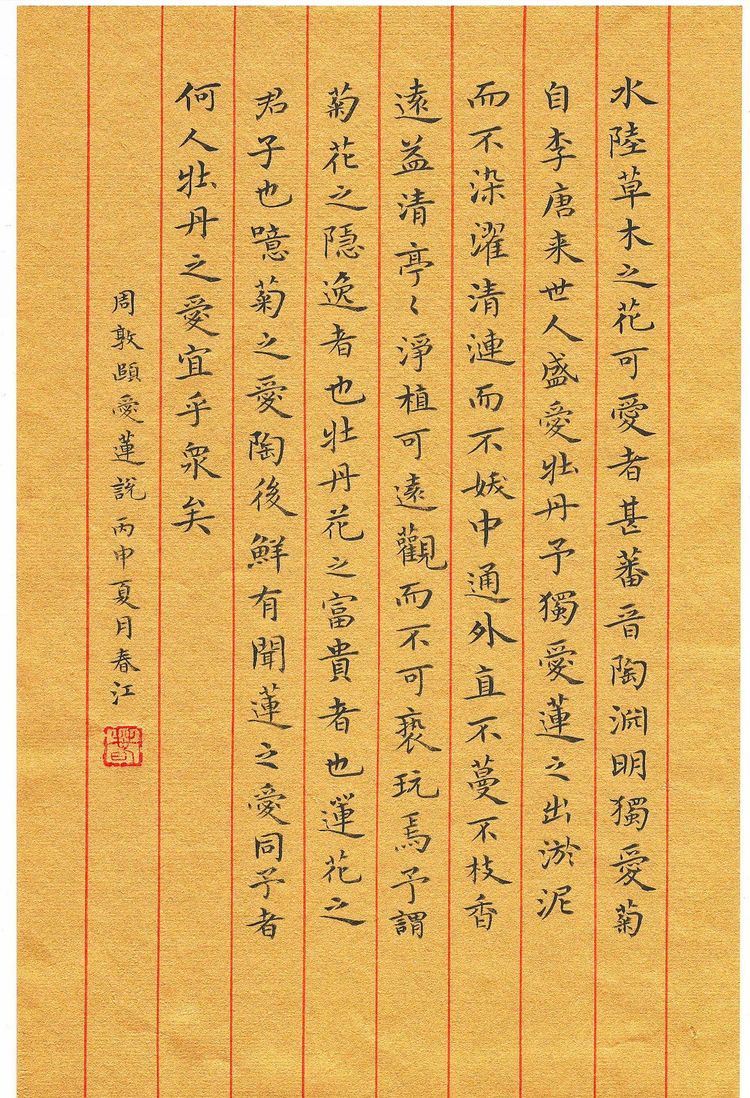 水陸草木之花可愛者甚蕃晋陶渊明獨愛菊
自李唐来世人盛愛牡丹予獨愛蓮之出淤泥
而不染濯清漣而不妖中通外直不蔓不枝香
遠益清亭〻淨植可遠觀而不可褻玩焉予謂
菊花之隱逸者也牡丹花之富貴者也蓮花之
君子也噫菊之愛陶後鮮有聞蓮之愛同予者
何人牡丹之愛宜乎眾矣
周敦頤愛蓮說 丙申夏月春江